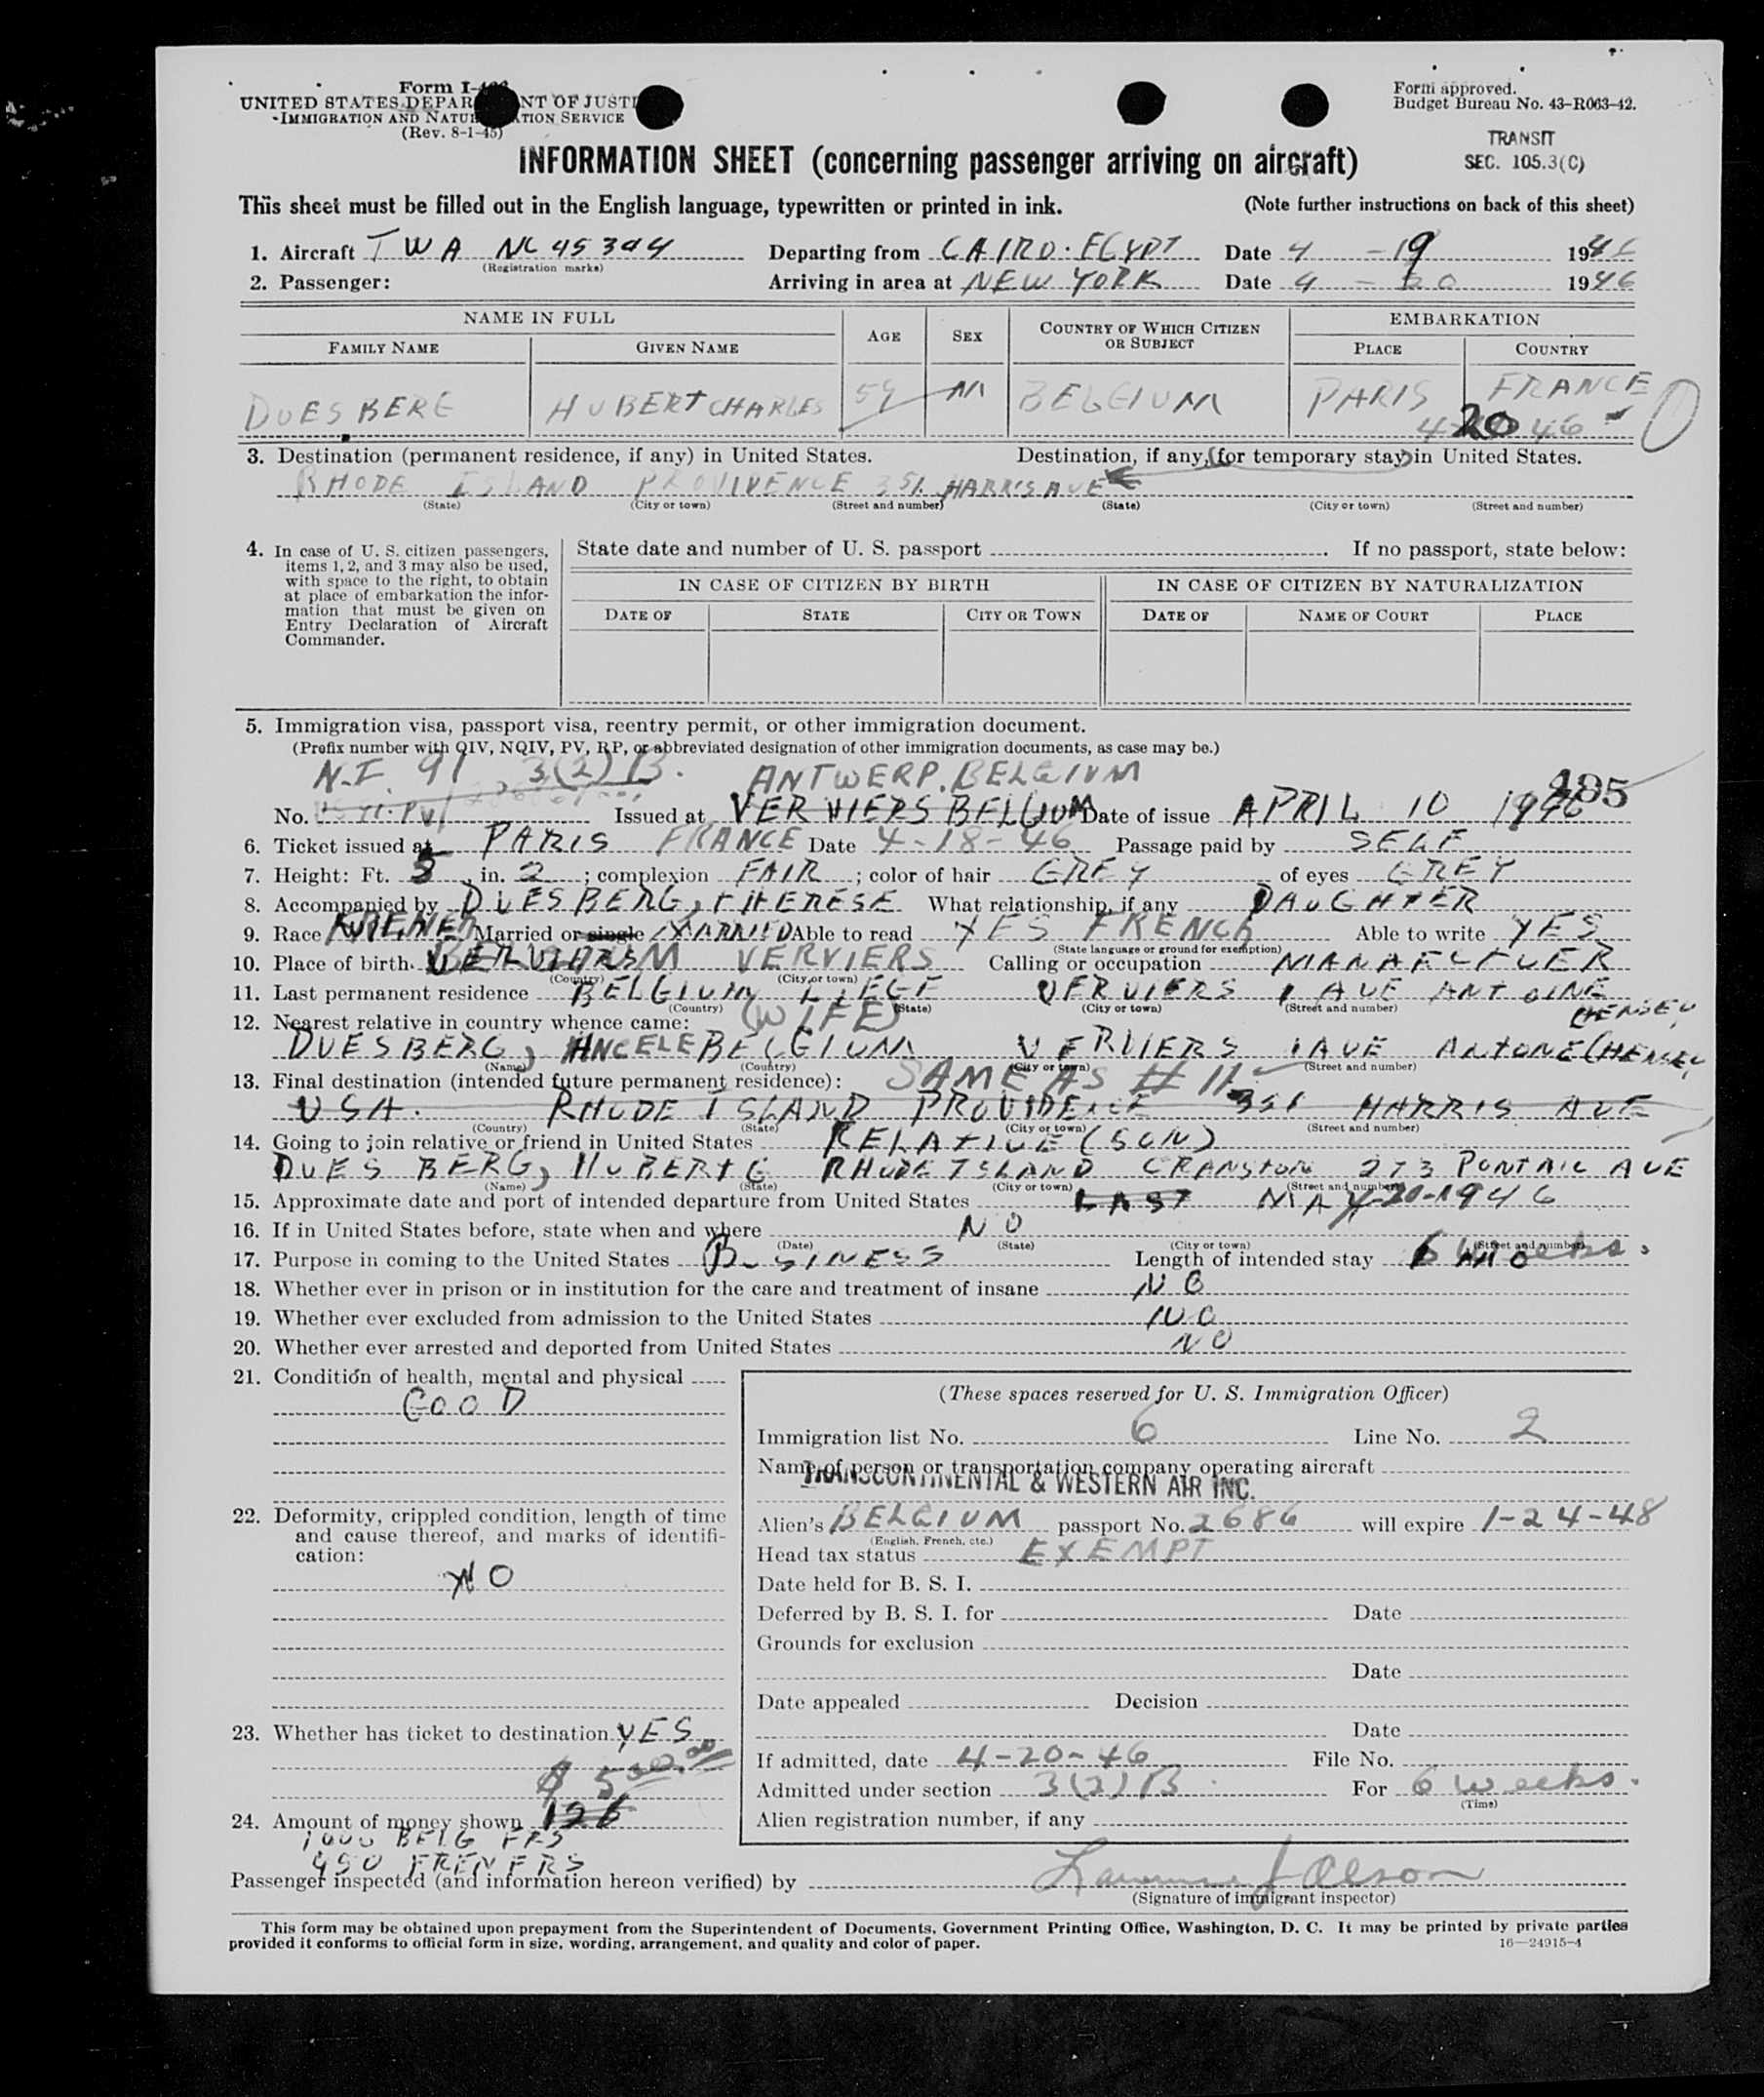 Form I-
UNITED STATES DEPAR NT OF JUSTI
IMMIGRATION AND NATU ATION SERVICE
(Rev. 8-1-45)
Form approved.
Budget Bureau No. 43-R063-42.
TRANSIT
SEC. 105.3(C)
INFORMATION SHEET (concerning passenger arriving on aircraft)
This sheet must be filled out in the English language, typewritten or printed in ink. (Note further instructions on back of this sheet)
1. Aircraft TWA NC 45344 Departing from CAIRO. EGYPT Date 4 - 19 1946
(Registration marks)
2. Passenger: Arriving in area at NEW YORK Date 4 - 20 1946
NAME IN FULL AGE SEX COUNTRY OF WHICH CITIZEN OR SUBJECT EMBARKATION
FAMILY NAME GIVEN NAME PLACE COUNTRY
DUESBERG HUBERT CHARLES 59 M BELGIUM PARIS FRANCE
4-20-46
3. Destination (permanent residence, if any) in United States. Destination, if any, (for temporary stay) in United States.
RHODE ISLAND PROVIDENCE 351 HARRIS AVE
(State) (City or town) (Street and number) (State) (City or town) (Street and number)
4. In case of U. S. citizen passengers, items 1, 2, and 3 may also be used, with space to the right, to obtain at place of embarkation the information that must be given on Entry Declaration of Aircraft Commander.
State date and number of U. S. passport . If no passport, state below:
IN CASE OF CITIZEN BY BIRTH IN CASE OF CITIZEN BY NATURALIZATION
DATE OF STATE CITY OR TOWN DATE OF NAME OF COURT PLACE
5. Immigration visa, passport visa, reentry permit, or other immigration document.
(Prefix number with QIV, NQIV, PV, RP, or abbreviated designation of other immigration documents, as case may be.)
N.I. 91 3(2)B. ANTWERP. BELGIUM
No. Issued at VERVIERS BELGIUM Date of issue APRIL 10 1946
6. Ticket issued at PARIS FRANCE Date 4-18-46 Passage paid by SELF
7. Height: Ft. 5, in. 2; complexion FAIR; color of hair GREY of eyes GREY
8. Accompanied by DUESBERG, THERESE What relationship, if any DAUGHTER
9. Race Married or single MARRIED Able to read YES FRENCH Able to write YES
(State language or ground for exemption)
10. Place of birth VERVIERS Calling or occupation
(Country) (City or town)
11. Last permanent residence BELGIUM LIEGE VERVIERS 1 AVE ANTOINE
(Country) (State) (City or town) (Street and number)
12. Nearest relative in country whence came: (WIFE)
DUESBERG, BELGIUM VERVIERS 1 AVE ANTONE
(Name) (Country) (City or town) (Street and number)
13. Final destination (intended future permanent residence): SAME AS # 11
USA. RHODE ISLAND PROVIDENCE 351 HARRIS AVE
(Country) (State) (City or town) (Street and number)
14. Going to join relative or friend in United States RELATIVE (SON)
DUESBERG, HUBERT G RHODE ISLAND CRANSTON 273 PONTAIC AVE
(Name) (State) (City or town) (Street and number)
15. Approximate date and port of intended departure from United States LAST MAY-20-1946
16. If in United States before, state when and where NO
(Date) (State) (City or town) (Street and number)
17. Purpose in coming to the United States BUSINESS Length of intended stay 6 weeks.
18. Whether ever in prison or in institution for the care and treatment of insane NO
19. Whether ever excluded from admission to the United States NO
20. Whether ever arrested and deported from United States NO
21. Condition of health, mental and physical
GOOD
22. Deformity, crippled condition, length of time and cause thereof, and marks of identification:
NO
23. Whether has ticket to destination YES
$ 500.00
24. Amount of money shown 126
1000 BELG FRS
450 FREN FRS
(These spaces reserved for U. S. Immigration Officer)
Immigration list No. 6 Line No. 2
Name of person or transportation company operating aircraft
TRANSCONTINENTAL & WESTERN AIR INC.
Alien's BELGIUM passport No. 2686 will expire 1-24-48
(English, French, etc.)
Head tax status EXEMPT
Date held for B. S. I.
Deferred by B. S. I. for Date
Grounds for exclusion
Date
Date appealed Decision
Date
If admitted, date 4-20-46 File No.
Admitted under section 3(2)B For 6 weeks.
(Time)
Alien registration number, if any
Passenger inspected (and information hereon verified) by Lawrence J Olson
(Signature of immigrant inspector)
This form may be obtained upon prepayment from the Superintendent of Documents, Government Printing Office, Washington, D. C. It may be printed by private parties
provided it conforms to official form in size, wording, arrangement, and quality and color of paper.
16—24915-4